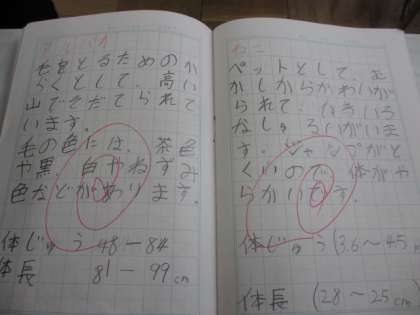 アルパカ
毛をとるためのか
ちくとして、高い
山でそだてられて
います。
毛の色には、茶色
や黒、白やねずみ
色などがあります。
体じゅう 48－84
体長 81－99cm
ねこ
ペットとして、む
かしからかわいが
られて、いろいろ
なしゅるいがいま
す。ジャンプがと
くいので、体がや
らかいです。
体じゅう (3.6～45
体長 (28～25cm)